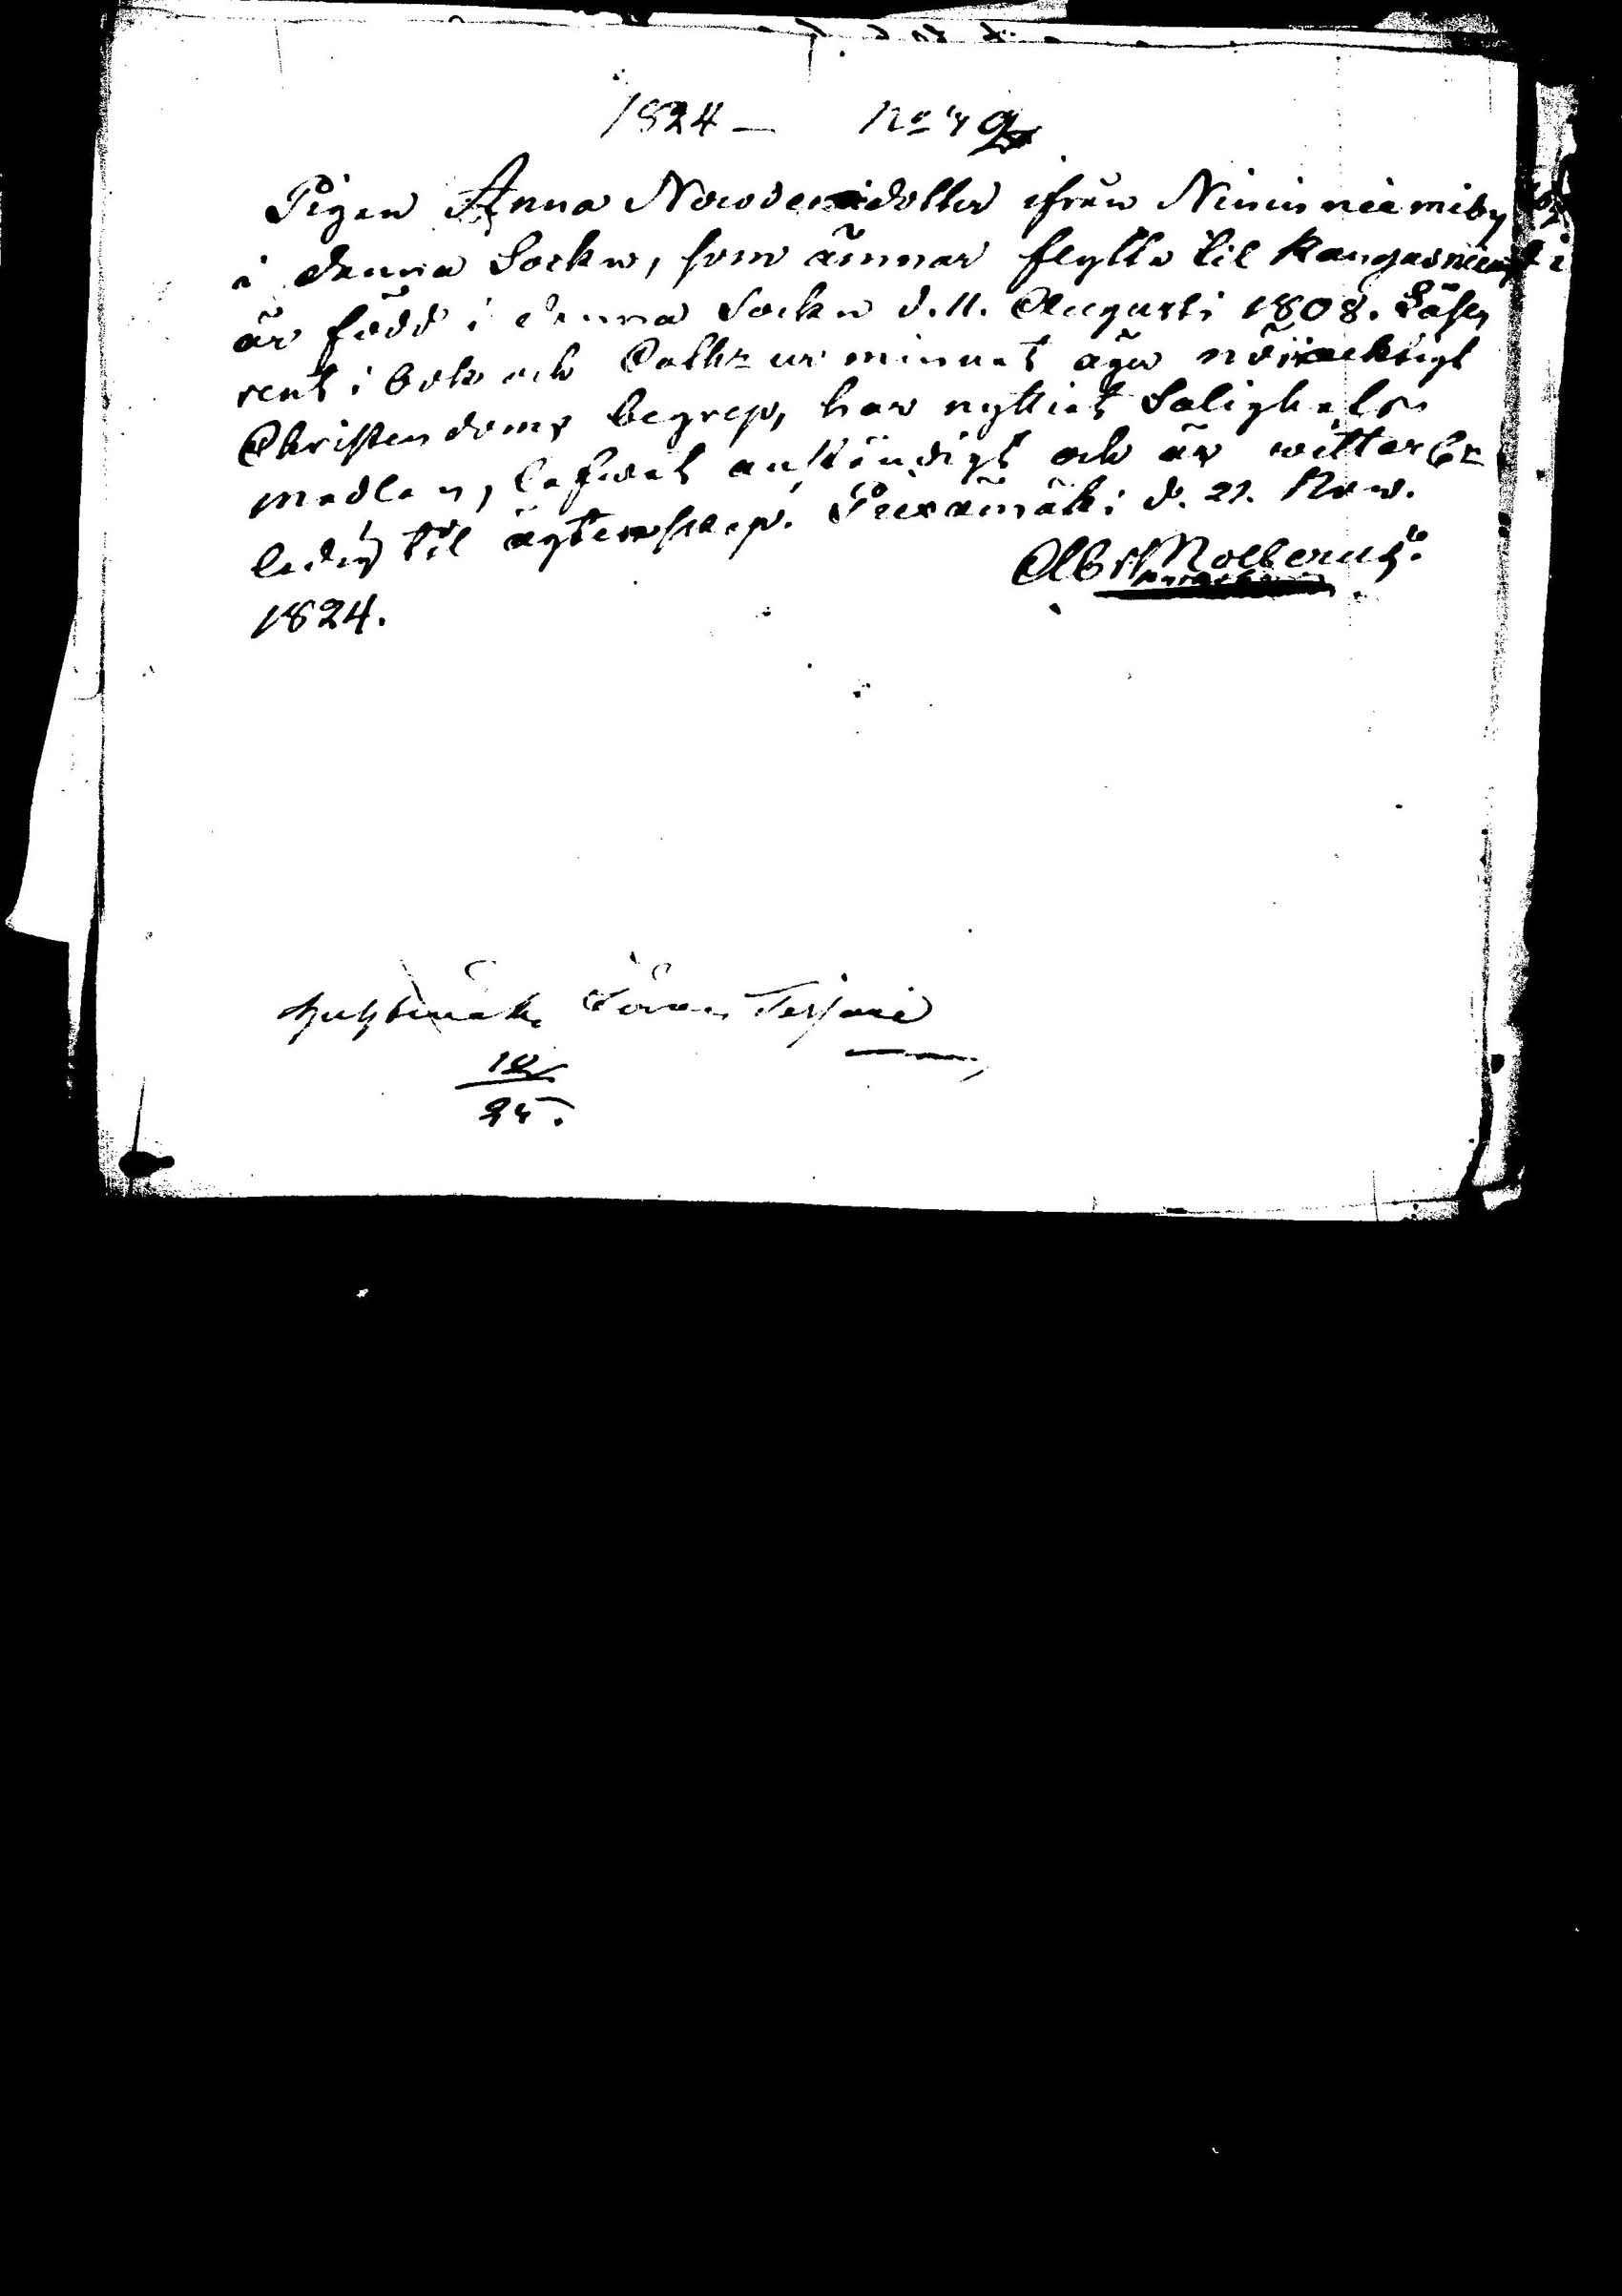 1824 — No 49
Pigan Anna Nowdenidotter ifrån Nininiemi by
i denna Sockn, som ämnar flytta til Kangasniemi
är född i denna Sockn d. 11. Augusti 1808. Läser
rent i bok och Cathr ur minnet äger nöijacktigt
Christendoms begrep, har nyttiat Salighets
medlen, lefwat anständigt och är witterl.
ledig til ägtenskap. Piexämäki d. 21. Now.
1824.
Albr. Molberus.
Terfwe
12
25.